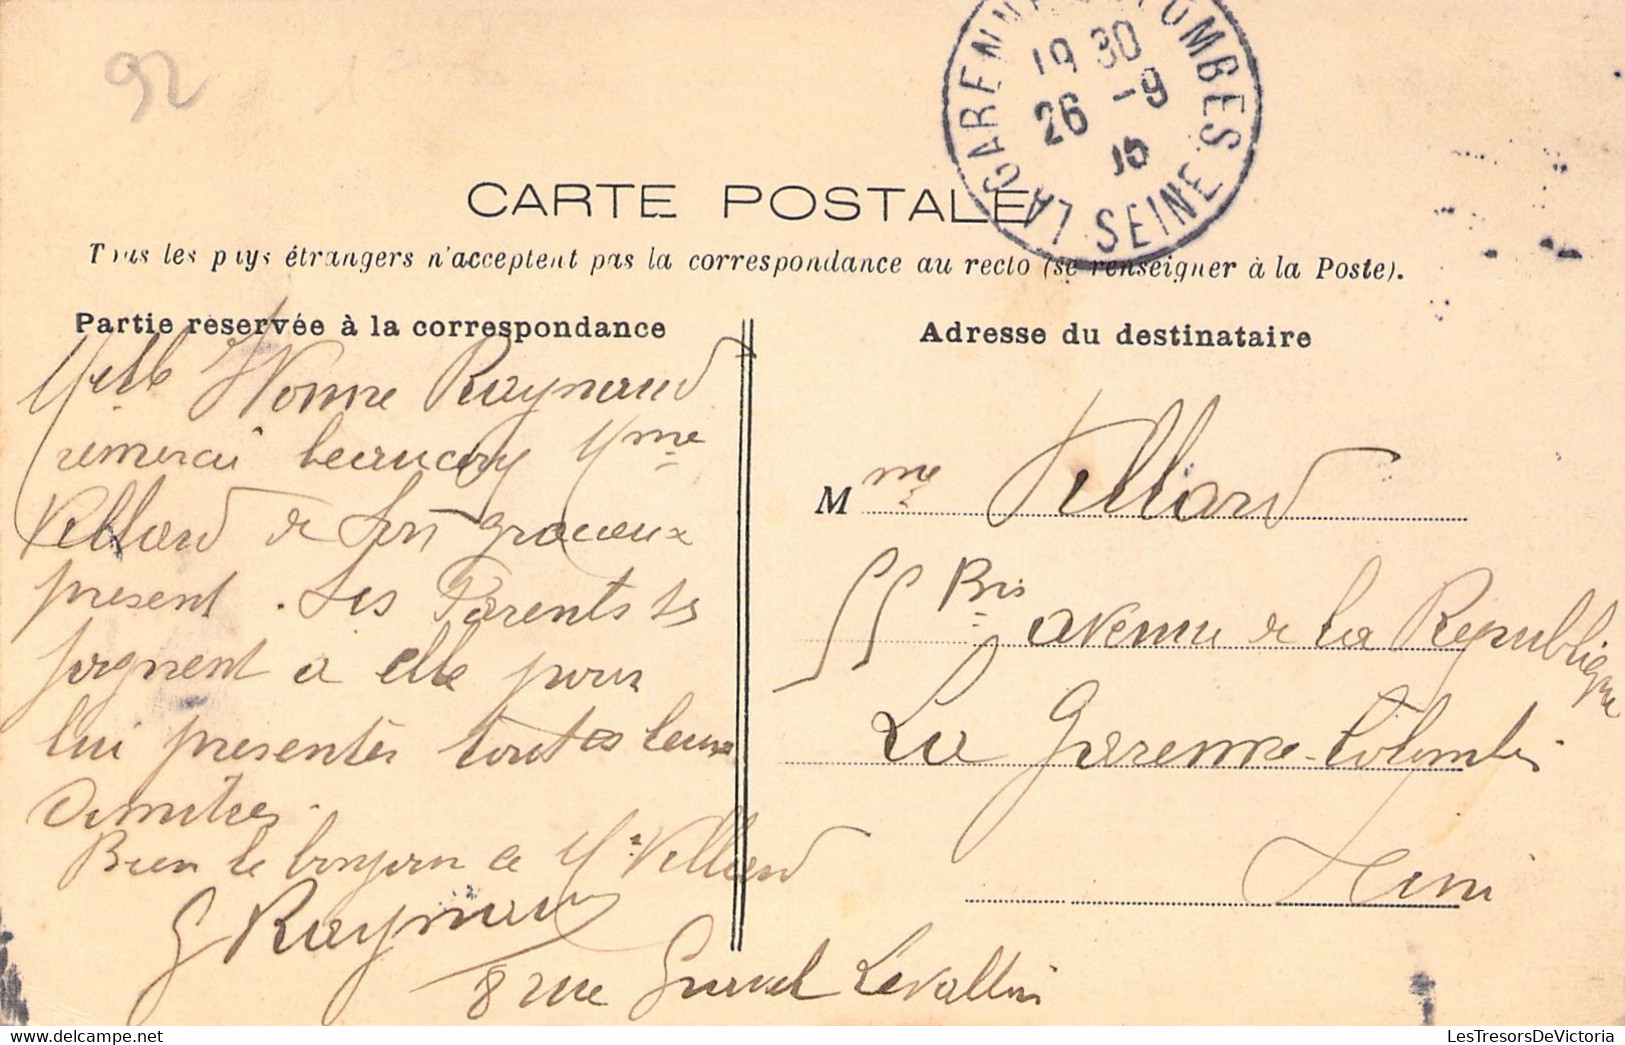 92
LA GARENNE-COLOMBES
19 30
26 -9
15
SEINE
CARTE POSTALE
Tous les pays étrangers n'acceptent pas la correspondance au recto (se renseigner à la Poste).
Partie réservée à la correspondance
Melle Yvonne Raynaud
remerci beaucoup Mme
Villard de son gracieux
present. Ses Parents se
joignent a elle pour
lui presentés toutes leurs
Amities.
Bien le bonjour a Mr Villard
G Raynaud
8 rue Levallois
Adresse du destinataire
Mme Villard
55 Bis avenue de la Republique
La Garenne-Colombes
Seine
LesTresorsDeVictoria.com